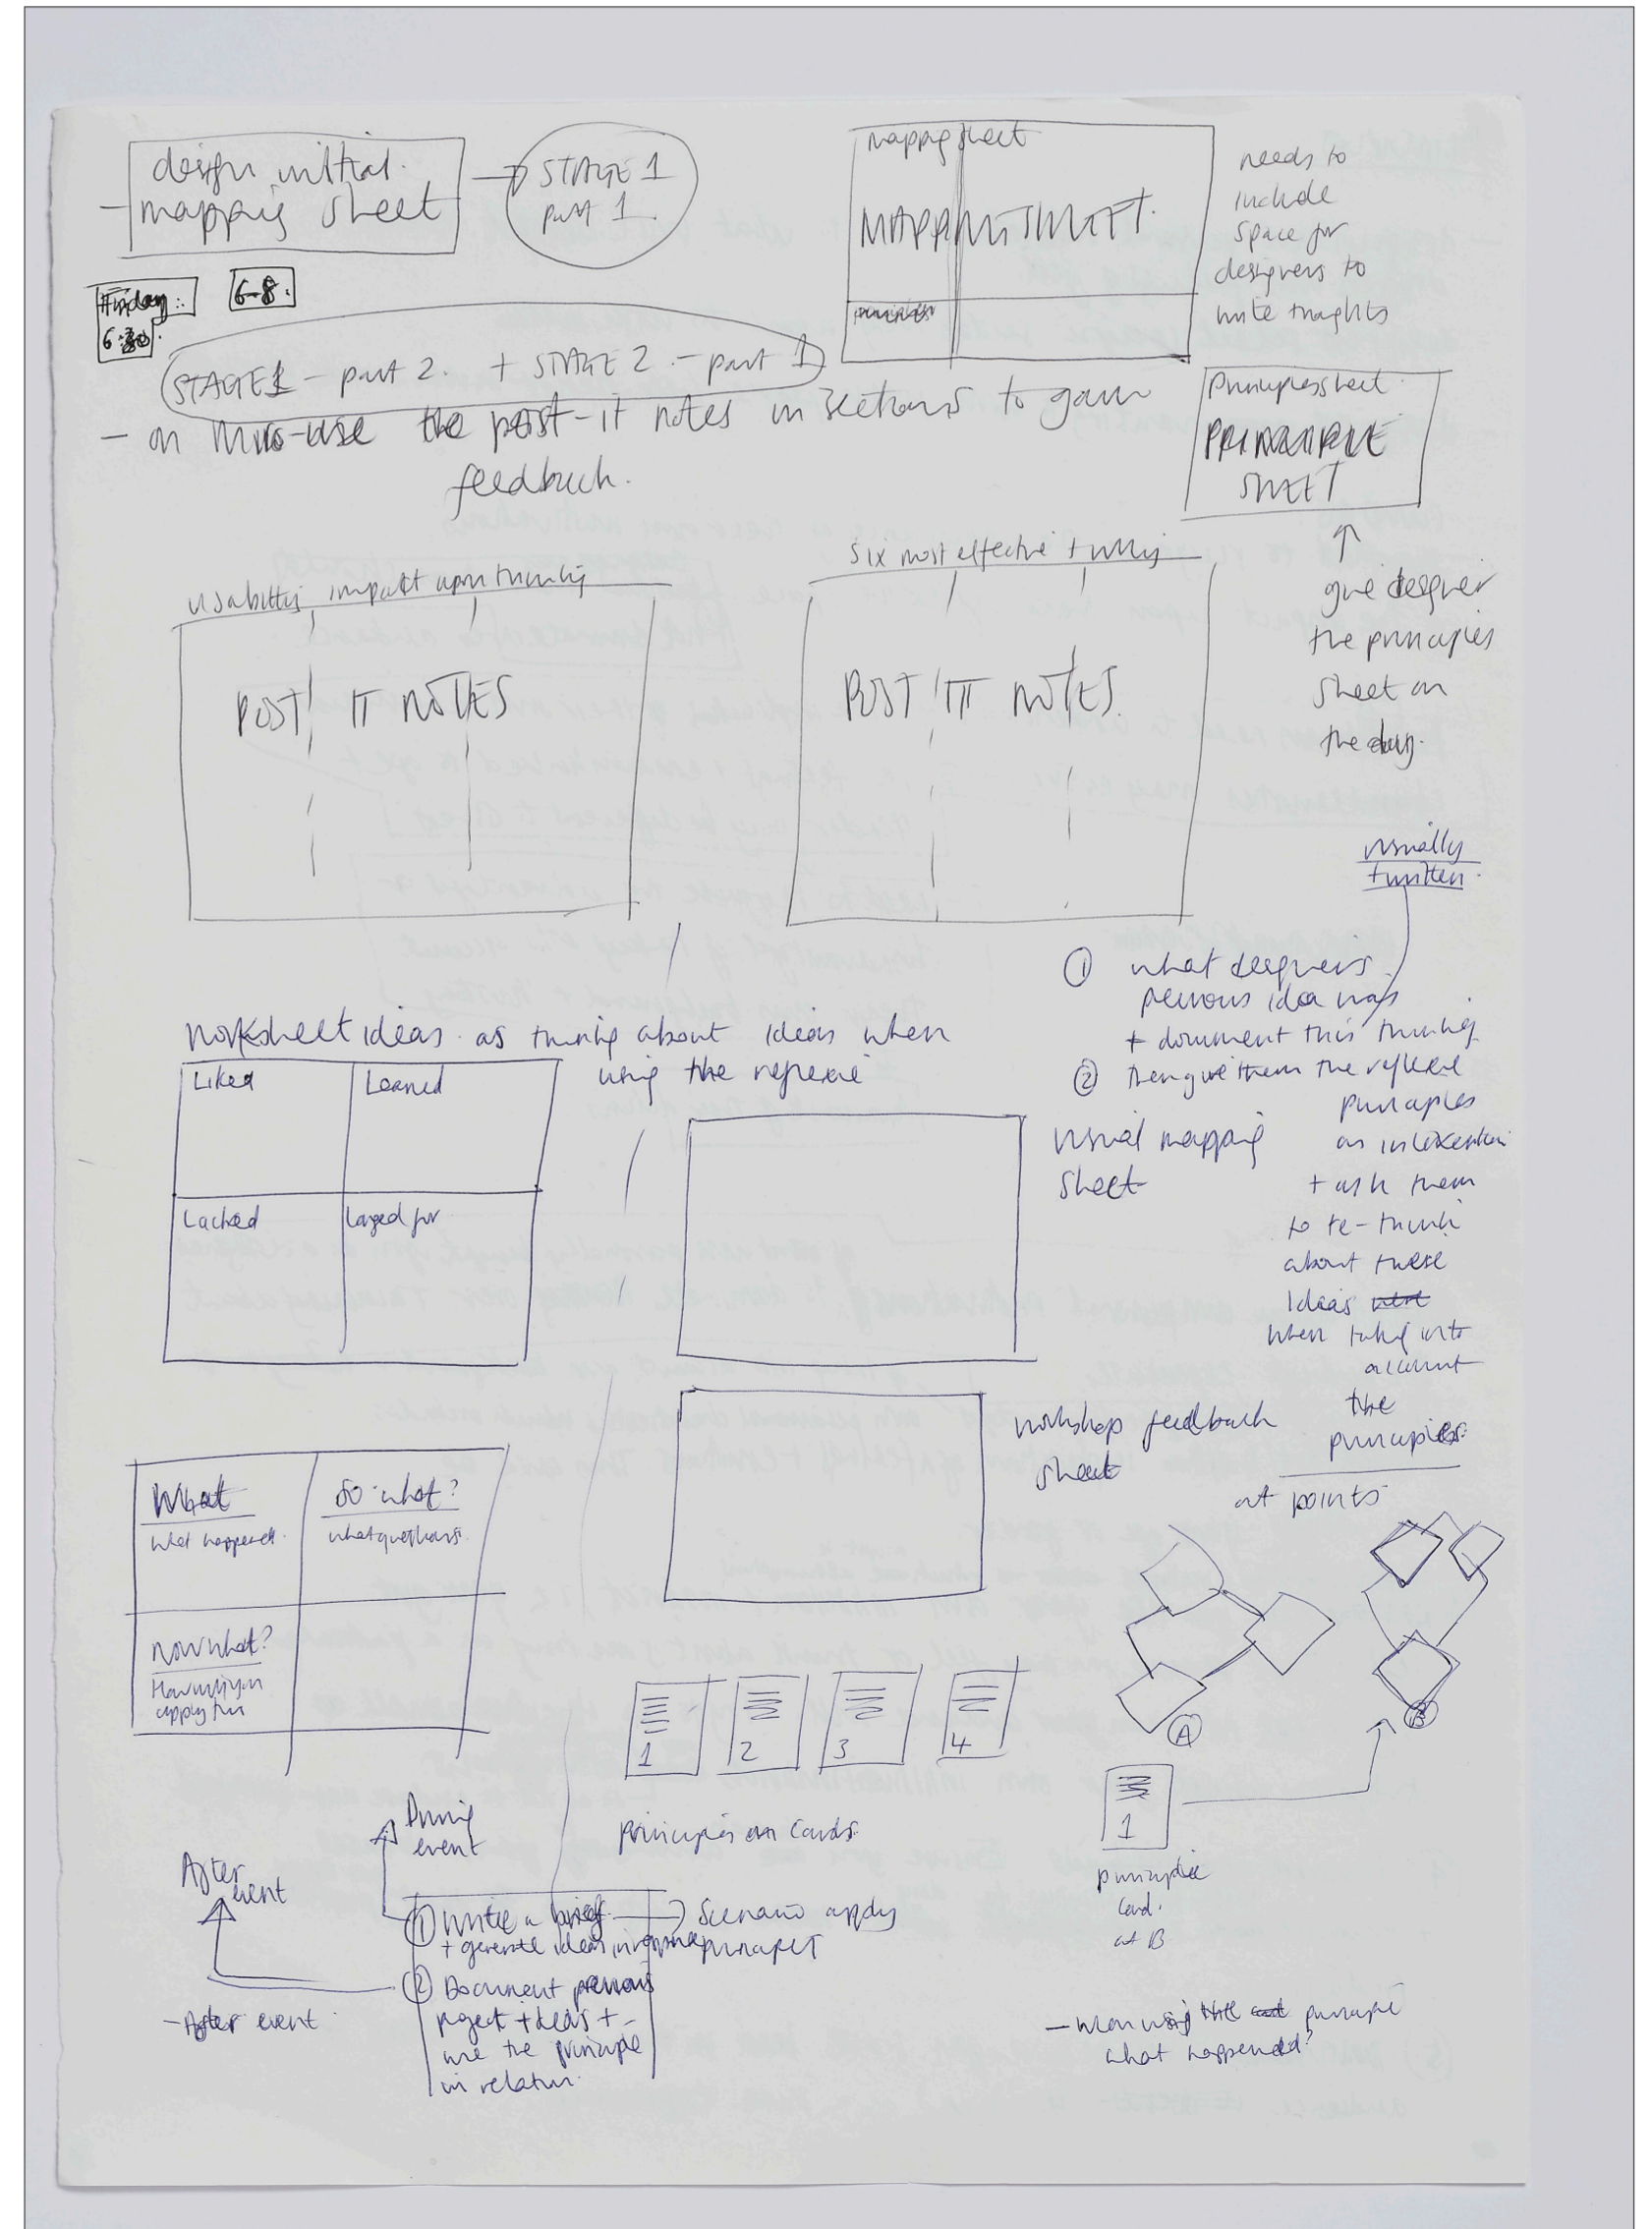 design initial
- mapping sheet
STAGE 1
part 1.
mapping sheet
MAPPING SHEET.
principles
needs to
include
space for
designers to
write thoughts
6-8.
STAGE 1 - part 2. + STAGE 2. - part 1
- on this - use the post-it notes in sections to gain
feedback.
Principles sheet.
PRINCIPLE
SHEET
give designer
the principles
sheet on
the day.
usability impact upon thinking
POST IT NOTES
six most effective + why
POST IT NOTES.
usually
+ written.
① what designers
previous idea was
+ document this thinking
② then give them the reflexive
principles
as intervention
+ ask them
to re-think
about these
ideas
when taking into
account
the
principles.
at points
worksheet ideas. as thinking about ideas when
using the reflexive
Liked
Learned
Lacked
Longed for
visual mapping
sheet
workshop feedback
sheet
What
what happened.
So what?
what questions.
Now what?
How will you
apply this
1
2
3
4
principles on cards.
A
B
1
principle
card.
at B
During
event
After
event
① Write a brief
+ generate ideas in response
Scenario apply
② Document previous
project + ideas +
use the principle
in relation.
- After event.
- when using the principle
what happened?